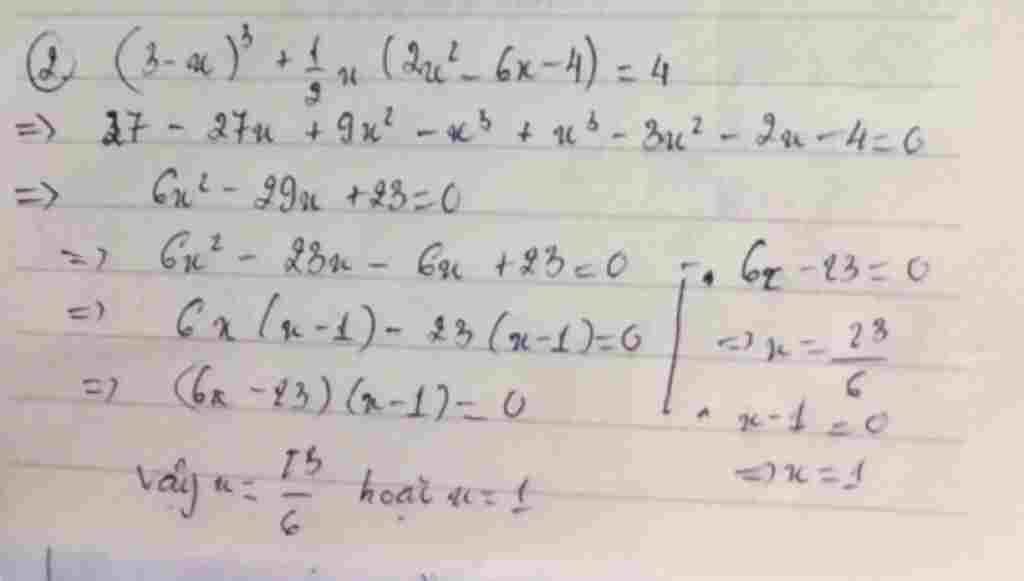 ② (3-x)³ + 1/2 x (2x² - 6x - 4) = 4
=> 27 - 27x + 9x² - x³ + x³ - 3x² - 2x - 4 = 0
=> 6x² - 29x + 23 = 0
=> 6x² - 23x - 6x + 23 = 0
=> 6x (x-1) - 23 (x-1) = 0
=> (6x - 23) (x-1) = 0
• 6x - 23 = 0
=> x = 23/6
• x - 1 = 0
=> x = 1
Vậy x = 23/6 hoặc x = 1